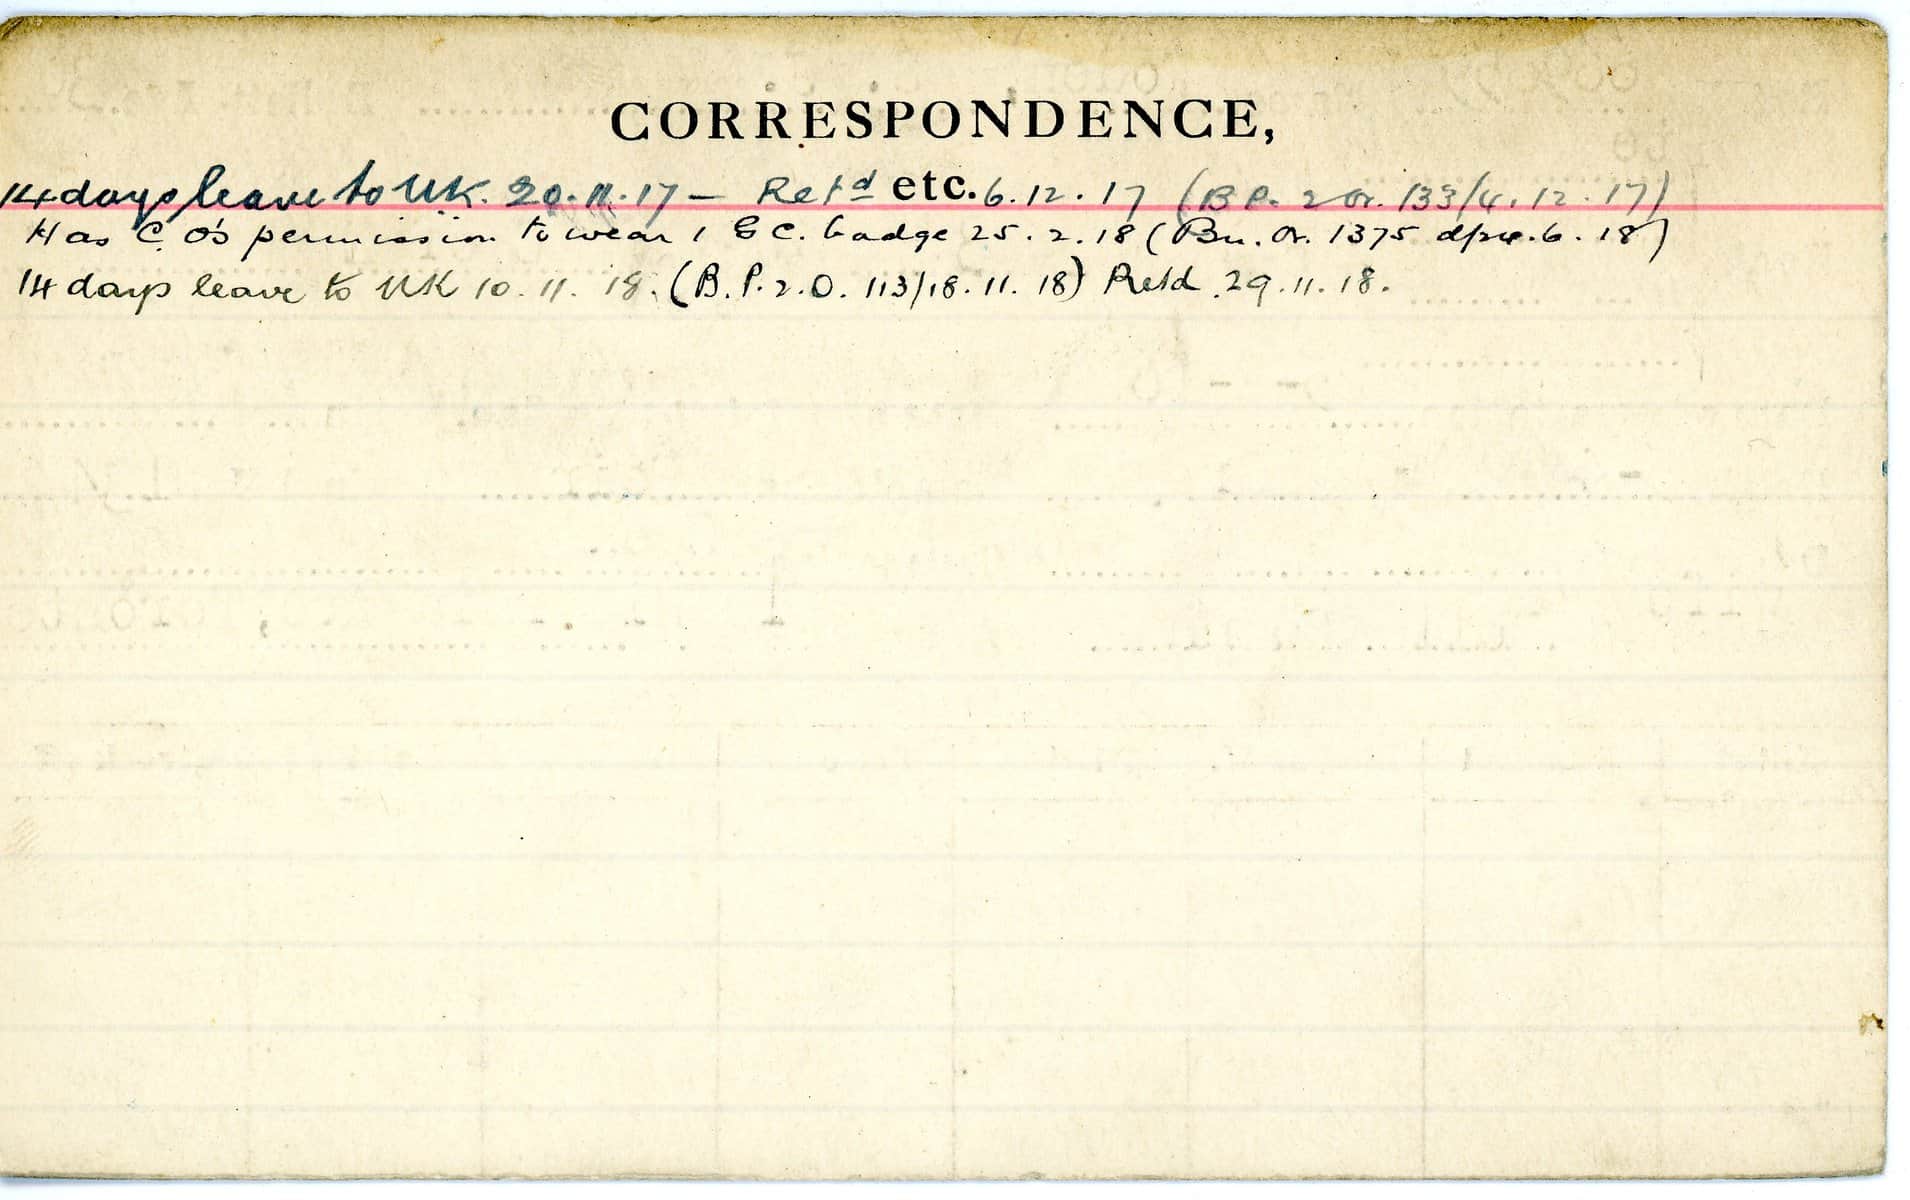 CORRESPONDENCE,
14 days leave to UK. 20.11.17 — Retd etc. 6.12.17 (B P. 2 Or. 133/4.12.17)
Has C. O's permission to wear 1 G C. badge 25.2.18 (Bn. Or. 1375 d/24.6.18)
14 days leave to UK 10.11.18. (B.P.2.O. 113/18.11.18) Retd .29.11.18.